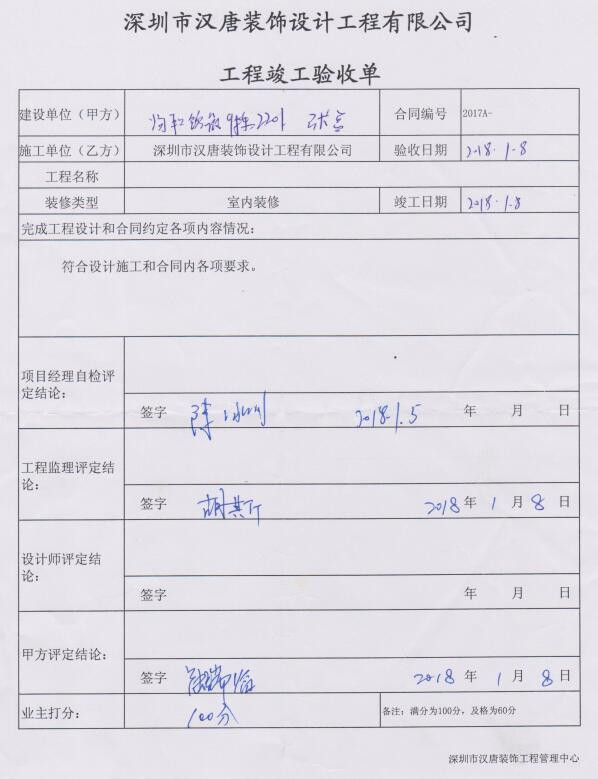 深圳市汉唐装饰设计工程有限公司
工程竣工验收单
建设单位（甲方） 9栋2201 合同编号 2017A-
施工单位（乙方） 深圳市汉唐装饰设计工程有限公司 验收日期 2018.1.8
工程名称
装修类型 室内装修 竣工日期 2018.1.8
完成工程设计和合同约定各项内容情况：
符合设计施工和合同内各项要求。
项目经理自检评定结论：
签字 陈 2018.1.5 年 月 日
工程监理评定结论：
签字 胡 2018年1月8日
设计师评定结论：
签字 年 月 日
甲方评定结论：
签字 2018年1月8日
业主打分： 100分 备注：满分为100分，及格为60分
深圳市汉唐装饰工程管理中心